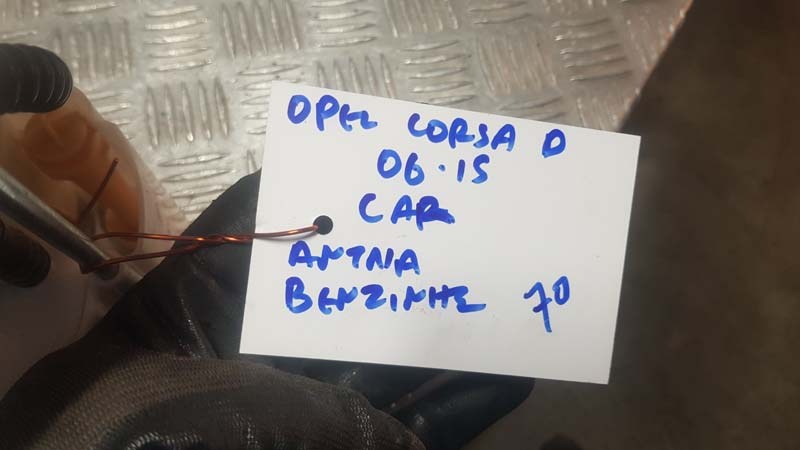 OPEL CORSA D
06.15
CAR
ANTNA
BENZINHE 70